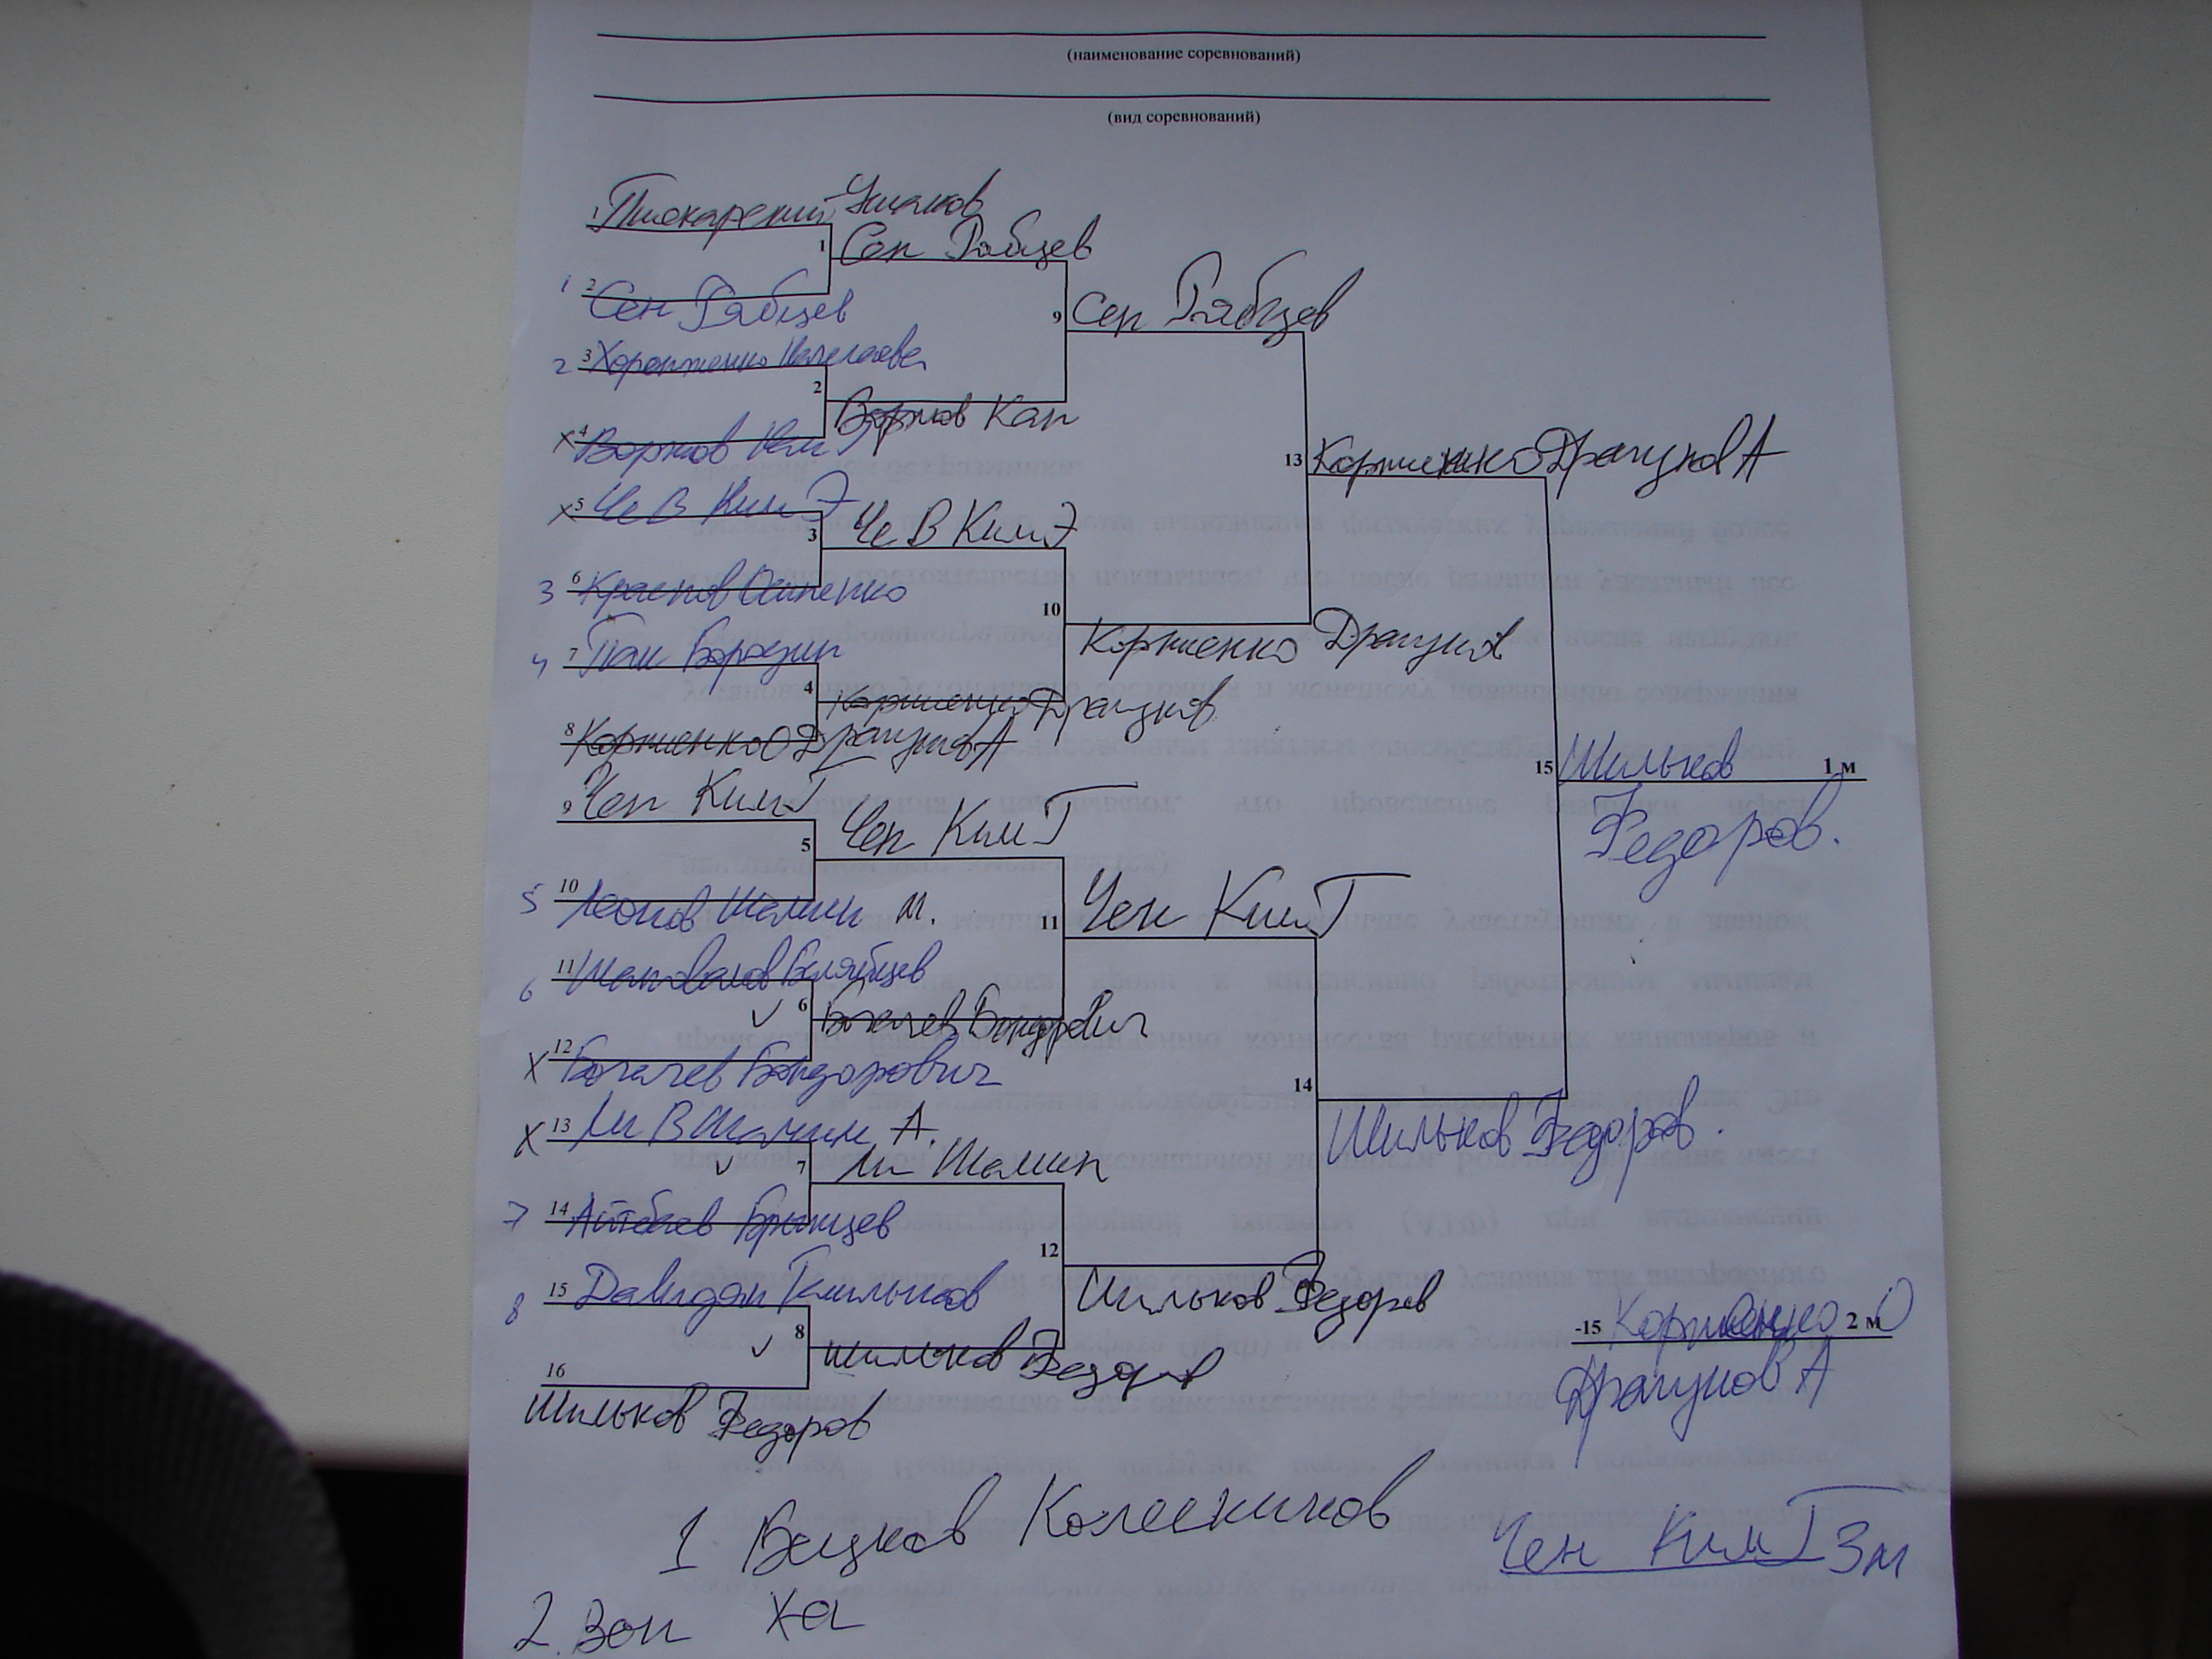 (наименование соревнований)
(вид соревнований)
1 Пискарений Ушаков
1 Сен Рябцев
1 2 Сен Рябцев
9 Сен Рябцев
2 3 Хороженко
2 Ворнов Кан
x 4 Ворнов Кан
13 Корниенко Драгунов А
x 5 Че В Ким Э
3 Че В Ким Э
3 6 Краснов Осипенко
10 Корниенко Драгунов
4 7 Пак Бородин
4 Корниенко Драгунов
8 Корниенко О Драгунов А
15 Шильков 1 м
Федоров.
9 Чен Ким Т
5 Чен Ким Т
5 10 Леонов Шамин М.
11 Чен Ким Т
6 11 Шаповалов Белябцев
6 Богачев Бондорович
x 12 Богачев Бондорович
14 Шильков Федоров.
x 13 Ли В Шамин А.
7 Ли Шамин
7 14 Айтбаев Брынцев
12 Шильков Федоров
8 15 Давидян
8 Шильков Федоров
16
Шильков Федоров
-15 Корниенко О 2 м
Драгунов А
1 Бецков Колесников
Чен Ким Т 3м
2. Вон Ха